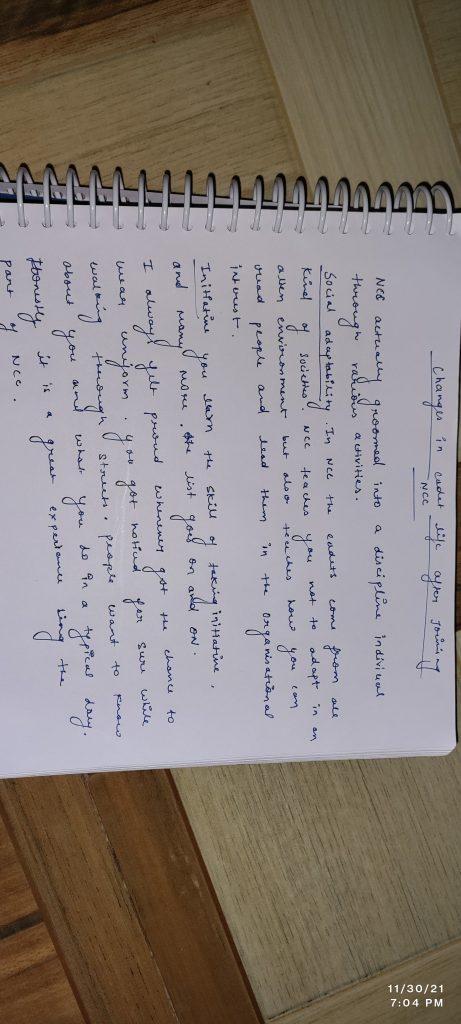 Changes in cadet life after Joining
NCC
NCC actually groomed into a discipline indiviual
through various activities.
Social adaptability. In NCC the cadets come from all
kind of societies. NCC teaches you not to adapt in an
alien environment but also teaches how you can
read people and lead them in the organisational
interest.
Initiative you learn the skill of taking initiative,
and many more. the list goes on and on.
I always felt proud whenever got the chance to
wear uniform. you got noticed for sure while
walking through streets, people want to know
about you and what you do in a typical day.
Honestly it is a great experience being the
part of NCC.
11/30/21
7:04 PM